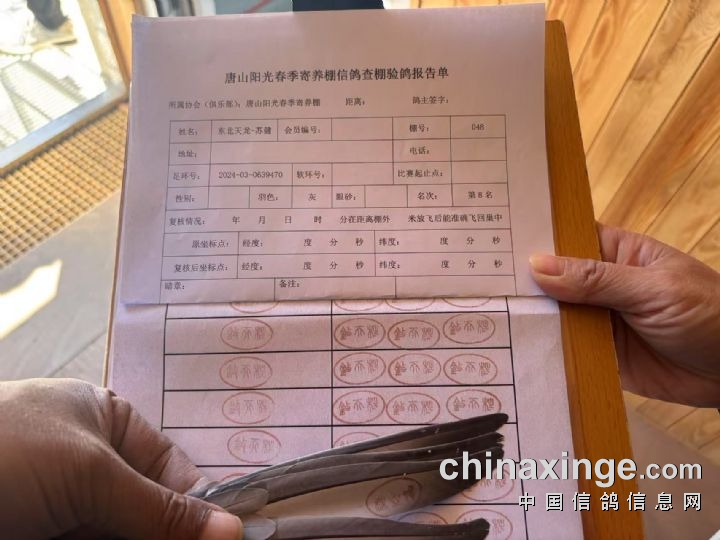 唐山阳光春季寄养棚信鸽查棚验鸽报告单
所属协会（俱乐部）：唐山阳光春季寄养棚 距离： 鸽主签字：
姓名： 东北天龙-苏健 会员编号： 棚号： 046
地址： 电话：
足环号： 2024-03-0639470 软环号： 比赛起止点：
性别： 羽色： 灰 眼砂： 名次： 第8名
复核情况： 年 月 日 时 分在距离棚外 米放飞后能准确飞回巢中
原坐标点： 经度： 度 分 秒 纬度： 度 分 秒
复核后坐标点： 经度： 度 分 秒 纬度： 度 分 秒
暗章： 备注：
chinaxinge.com
中国信鸽信息网